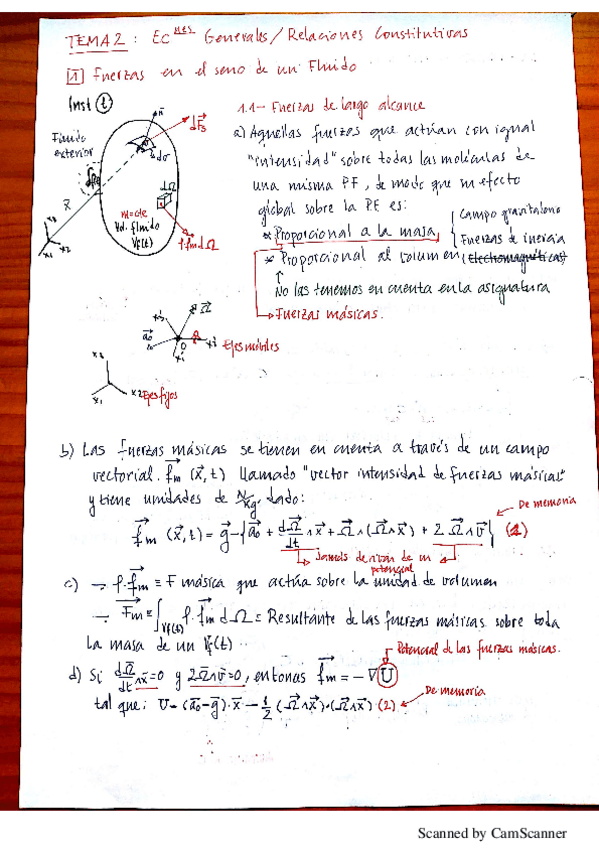 TEMA 2: Ec nes Generales/Relaciones Constitutivas
1 Fuerzas en el seno de un Fluido
Inst t
Fluido exterior
dF̄s
dσ
dΩ
m=cte
Vol. fluido
Vf(t)
ρ·f̄m dΩ
x̄
x3
x1 x2
1.1- Fuerzas de largo alcance
a) Aquellas fuerzas que actúan con igual
"intensidad" sobre todas las moléculas de
una misma PF, de modo que su efecto
global sobre la PF es:
* Proporcional a la masa { Campo gravitatorio
Fuerzas de inercia
* Proporcional al volumen (Electromagnéticas)
↑
No las tenemos en cuenta en la asignatura
→ Fuerzas másicas.
Ω̄
ā0
0
Ejes móviles
x3
x1 x2 Ejes fijos
b) Las fuerzas másicas se tienen en cuenta a través de un campo
vectorial f̄m (x̄,t) llamado "vector intensidad de fuerzas másicas"
y tiene unidades de N/Kg, dado:
De memoria
f̄m (x̄,t) = ḡ-{ā0 + dΩ̄/dt ∧ x̄ + Ω̄∧(Ω̄∧x̄) + 2Ω̄∧v̄} (1)
Jamás derivan de un potencial
c) → ρ·f̄m ≡ F másica que actúa sobre la unidad de volumen
→ F̄m ≡ ∫Vf(t) ρ·f̄m dΩ ≡ Resultante de las fuerzas másicas sobre toda
la masa de un Vf(t)
Potencial de las fuerzas másicas.
d) Si dΩ̄/dt ∧x̄=0 y 2Ω̄∧v̄=0, entonces f̄m = -∇U
De memoria
tal que: U = (ā0-ḡ)·x̄ - 1/2 (Ω̄∧x̄)·(Ω̄∧x̄) (2)
Scanned by CamScanner